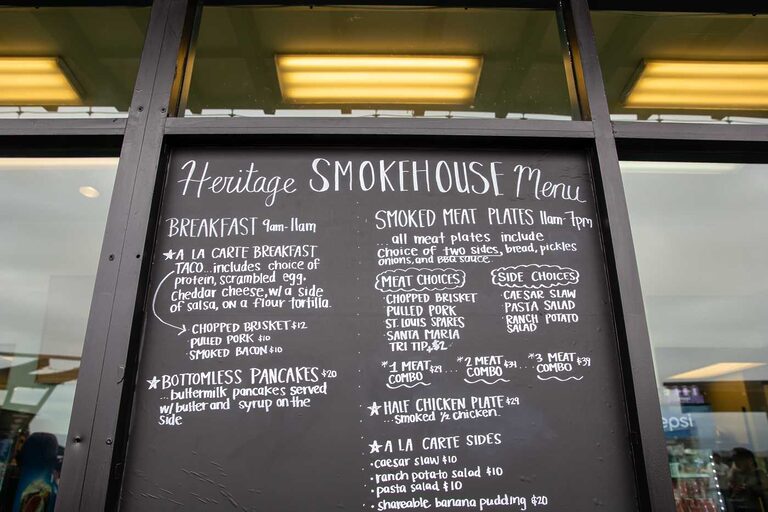 Heritage SMOKEHOUSE Menu
BREAKFAST 9am-11am
★ A LA CARTE BREAKFAST
TACO...includes choice of
protein, scrambled egg.
cheddar cheese, w/ a side
of salsa, on a flour tortilla.
· CHOPPED BRISKET $12
PULLED PORK $10
SMOKED BACON $10
★ BOTTOMLESS PANCAKES $20
...buttermilk pancakes served
w/ butter and syrup on the
side
SMOKED MEAT PLATES 11am-7pm
...all meat plates include
choice of two sides, bread, pickles
onions, and BBQ sauce...
MEAT CHOICES
CHOPPED BRISKET
PULLED PORK
ST. LOUIS SPARES
SANTA MARIA
TRI TIP +$2
SIDE CHOICES
CAESAR SLAW
PASTA SALAD
RANCH POTATO
SALAD
*1 MEAT COMBO $29 ... *2 MEAT COMBO $34 ... *3 MEAT COMBO $39
★ HALF CHICKEN PLATE $29
...smoked ½ chicken.
★ A LA CARTE SIDES
· caesar slaw $10
· ranch potato salad $10
· pasta salad $10
· shareable banana pudding $20
epsi